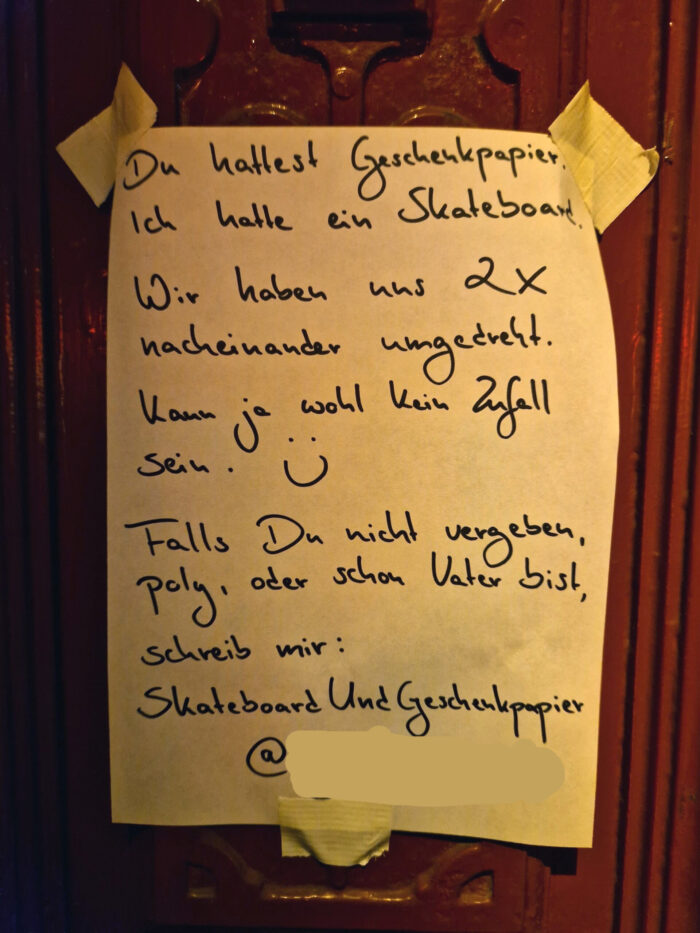 Du hattest Geschenkpapier.
Ich hatte ein Skateboard.
Wir haben uns 2x
nacheinander umgedreht.
Kann ja wohl kein Zufall
sein. Ü
Falls Du nicht vergeben,
poly, oder schon Vater bist,
schreib mir:
SkateboardUndGeschenkpapier
@